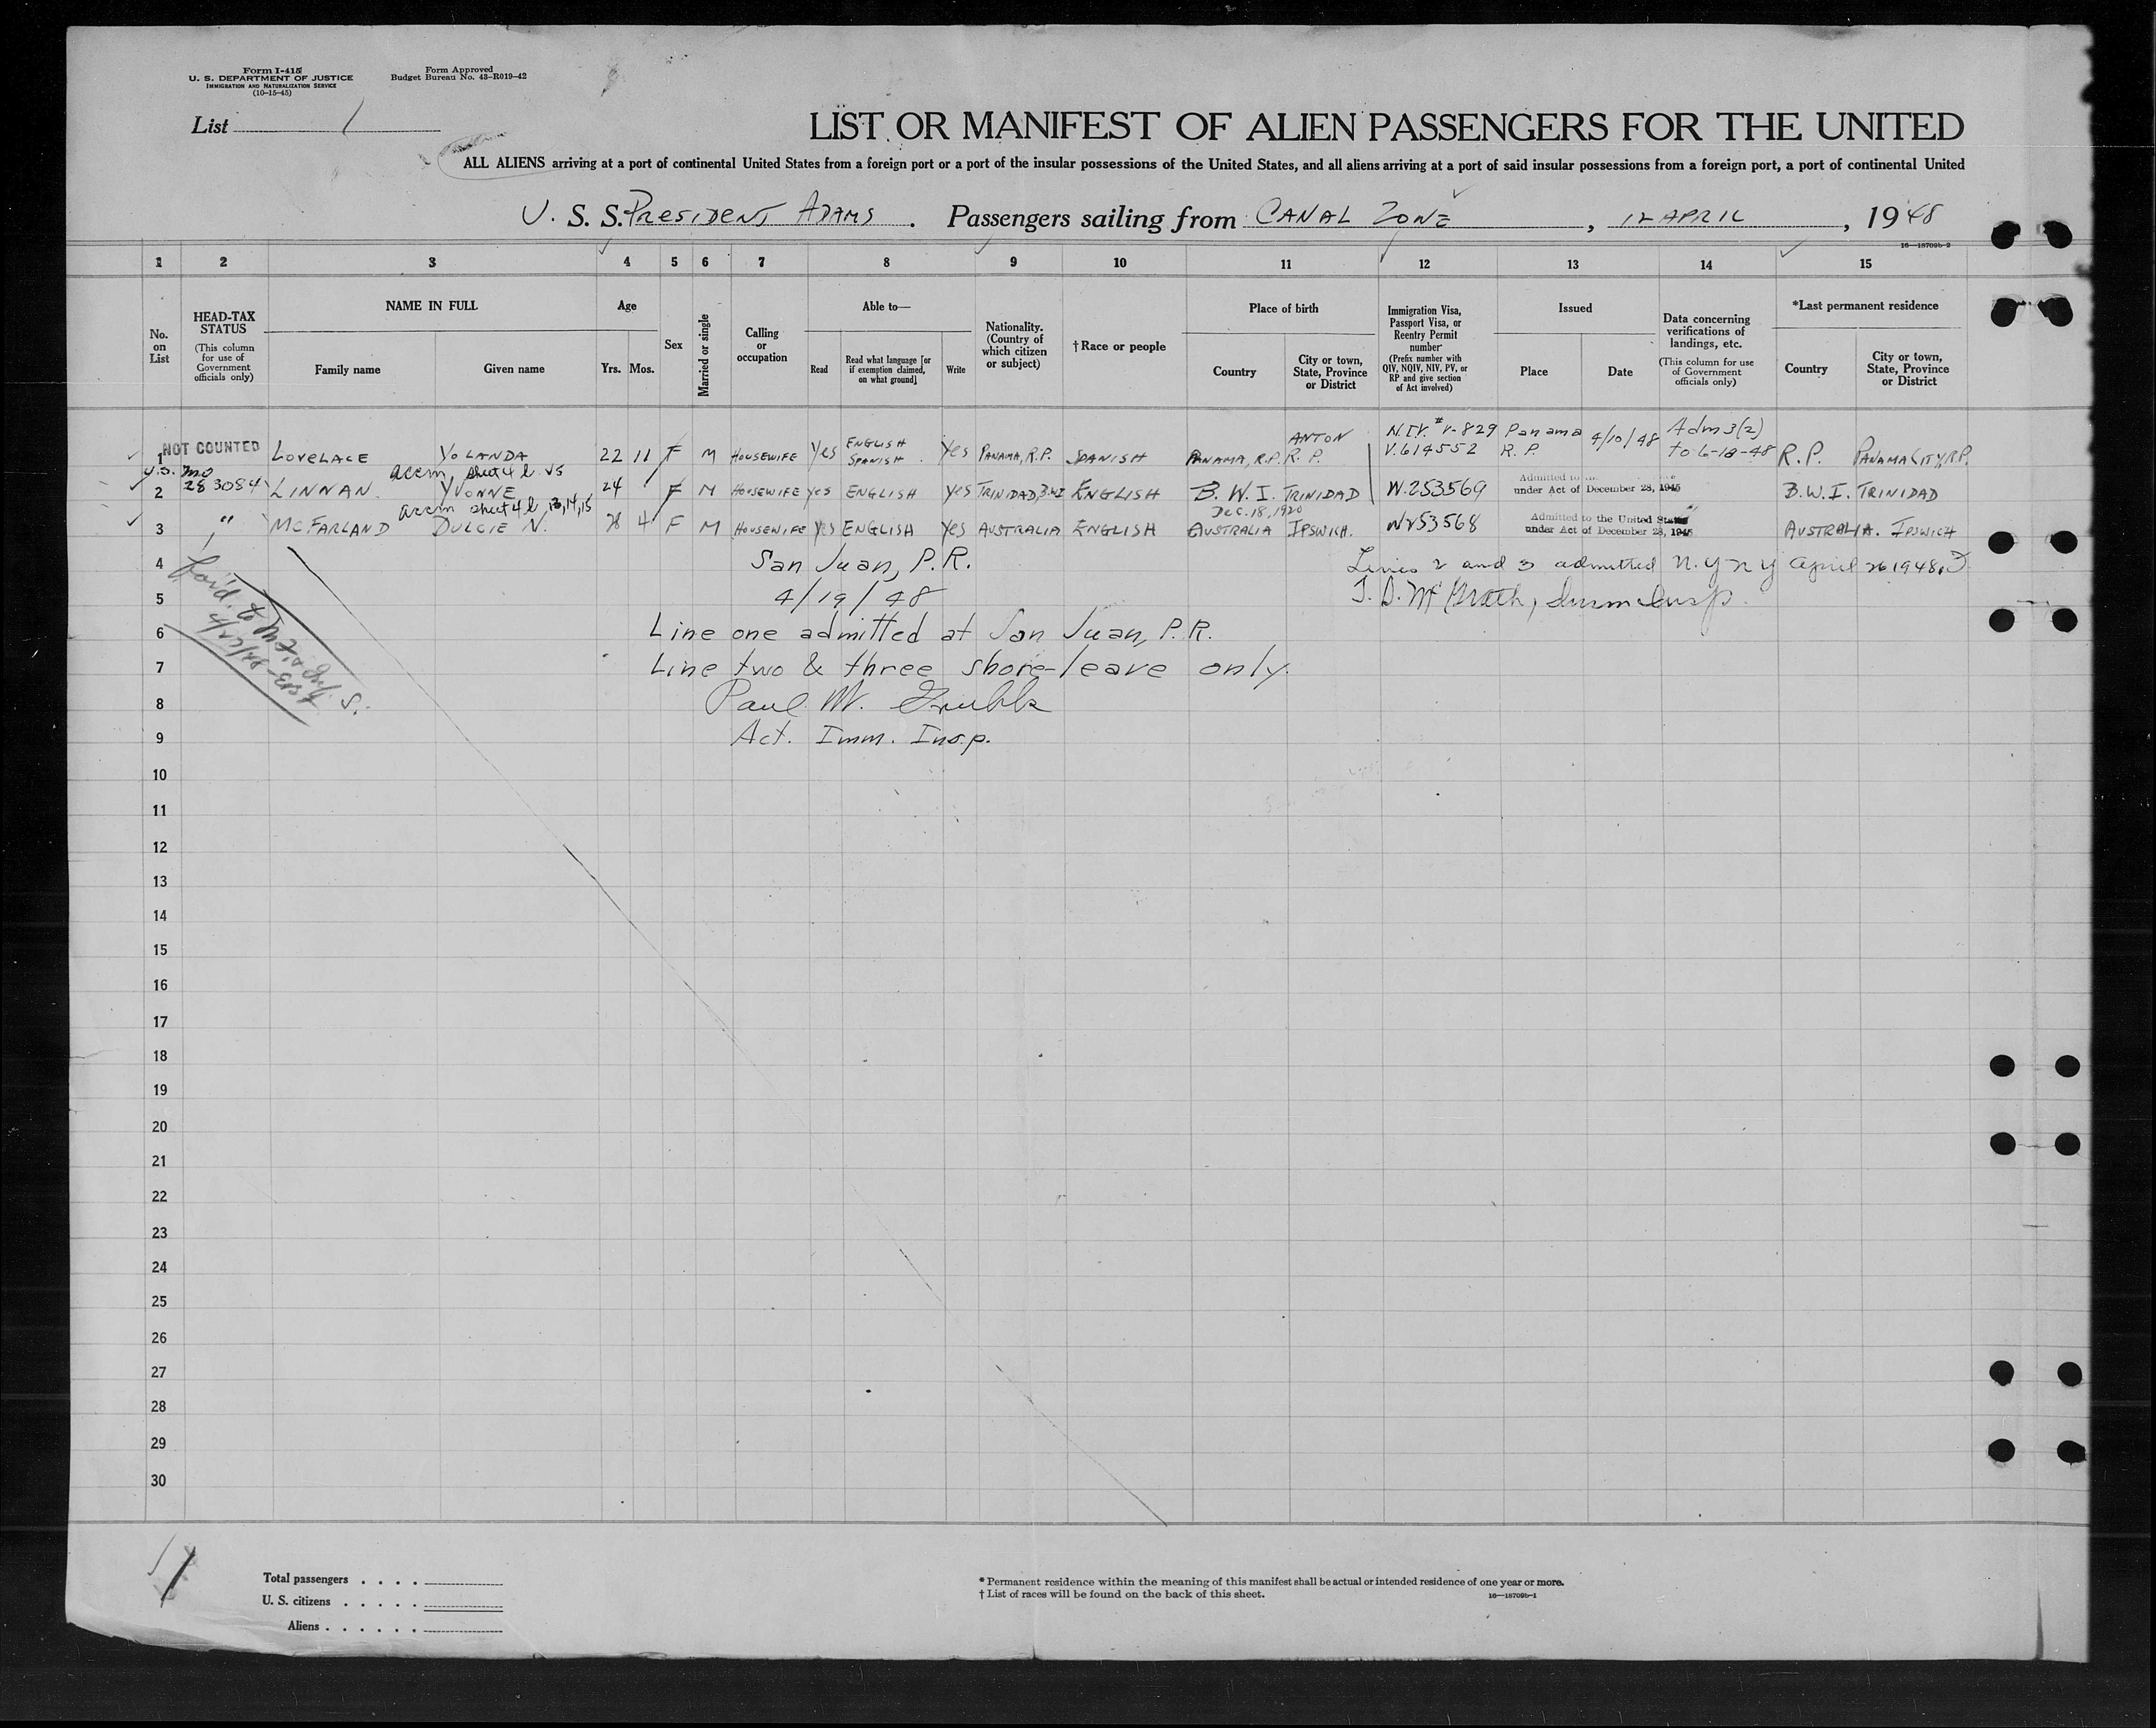 Form I-415
U. S. DEPARTMENT OF JUSTICE
IMMIGRATION AND NATURALIZATION SERVICE
(10-15-45)
Form Approved
Budget Bureau No. 43-R019-42
List 1
LIST OR MANIFEST OF ALIEN PASSENGERS FOR THE UNITED
ALL ALIENS arriving at a port of continental United States from a foreign port or a port of the insular possessions of the United States, and all aliens arriving at a port of said insular possessions from a foreign port, a port of continental United
U. S. S. PRESIDENT ADAMS . Passengers sailing from CANAL ZONE , 12 APRIL , 1948
16—18709b-2
1 2 3 4 5 6 7 8 9 10 11 12 13 14 15
No. on List
HEAD-TAX STATUS (This column for use of Government officials only)
NAME IN FULL
Family name Given name
Age
Yrs. Mos.
Sex
Married or single
Calling or occupation
Able to—
Read Read what language [or if exemption claimed, on what ground] Write
Nationality. (Country of which citizen or subject)
†Race or people
Place of birth
Country City or town, State, Province or District
Immigration Visa, Passport Visa, or Reentry Permit number (Prefix number with QIV, NQIV, NIV, PV, or RP and give section of Act involved)
Issued
Place Date
Data concerning verifications of landings, etc. (This column for use of Government officials only)
*Last permanent residence
Country City or town, State, Province or District
1 NOT COUNTED LOVELACE YOLANDA 22 11 F M HOUSEWIFE Yes ENGLISH SPANISH Yes PANAMA, R.P. SPANISH PANAMA, R.P. ANTON R. P. N.I.V. # V-829 V.614552 Panama R. P. 4/10/48 Adm 3(2) to 6-18-48 R.P. PANAMA CITY, R.P.
2 283084 LINNAN YVONNE 24 F M HOUSEWIFE yes ENGLISH yes TRINIDAD, B.W.I ENGLISH B. W. I. TRINIDAD W.253569 Admitted to under Act of December 28, 1945 B.W.I. TRINIDAD
Dec. 18, 1920
3 " MCFARLAND DULCIE N. 28 4 F M HOUSEWIFE yes ENGLISH yes AUSTRALIA ENGLISH AUSTRALIA IPSWICH. W253568 Admitted to the United States under Act of December 28, 1945 AUSTRALIA. IPSWICH
4 San Juan, P.R. Lines 2 and 3 admitted N.Y N Y April 26 1948
5 4/19/48
6 Line one admitted at San Juan, P.R.
7 Line two & three shore-leave only.
8 Paul W.
9 Act. Imm. Insp.
10
11
12
13
14
15
16
17
18
19
20
21
22
23
24
25
26
27
28
29
30
1
Total passengers . . . .
U. S. citizens . . . . .
Aliens . . . . . .
* Permanent residence within the meaning of this manifest shall be actual or intended residence of one year or more.
† List of races will be found on the back of this sheet.
16—18709b-1